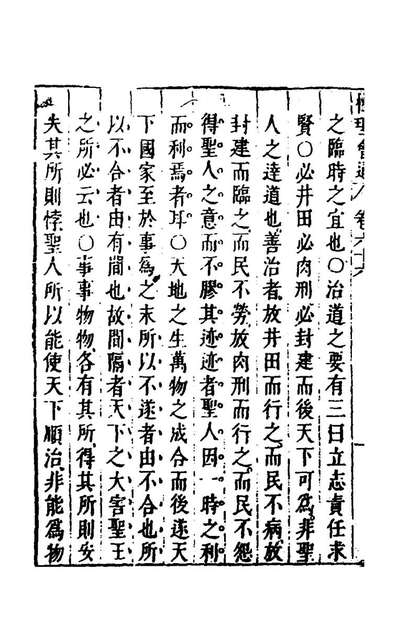 性理會通 卷六十六
之臨時之宜也○治道之要有三曰立志責任求
賢○必井田必肉刑必封建而後天下可爲非聖
人之達道也善治者放井田而行之而民不病放
封建而臨之而民不勞放肉刑而行之而民不怨
得聖人之意而不膠其迹迹者聖人因一時之利
而利焉者耳○天地之生萬物之成合而後遂天
下國家至於事爲之末所以不遂者由不合也所
以不合者由有間也故間隔者天下之大害聖王
之所必去也○事事物物各有其所得其所則安
失其所則悖聖人所以能使天下順治非能爲物